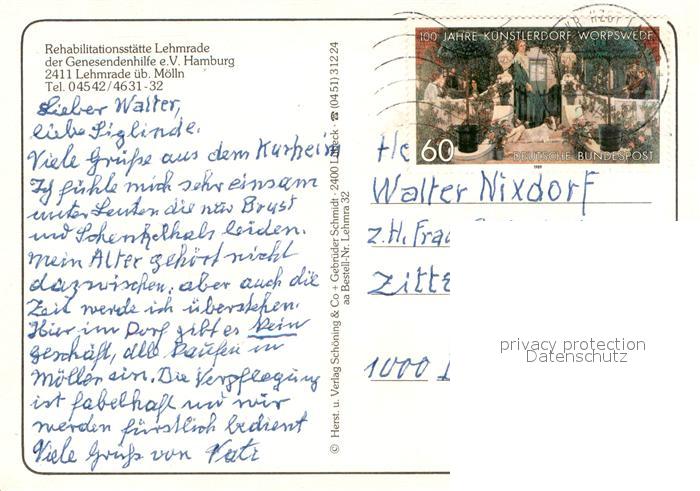 Rehabilitationsstätte Lehmrade
der Genesendenhilfe e.V. Hamburg
2411 Lehmrade üb. Mölln
Tel. 04542/4631-32
Lieber Walter,
liebe Siglinde.
Viele Grüße aus dem Kurheim
Ich fühle mich sehr einsam
unter Leuten die nur Brust
und Schenkelhals leiden.
Mein Alter gehört nicht
dazwischen. aber auch die
Zeit werde ich überstehen.
Hier im Dorf gibt es kein
geschäft, alle kaufen in
Möllen ein. Die Verpflegung
ist fabelhaft und wir
werden fürstlich bedient
Viele Grüße von Vati
© Herst. u. Verlag Schöning & Co + Gebrüder Schmidt · 2400 Lübeck · ☎ (0451) 31224
aa Bestell-Nr. Lehmra 32
100 JAHRE KÜNSTLERDORF WORPSWEDE
60 DEUTSCHE BUNDESPOST
1989
He
Walter Nixdorf
z.H. Frau
Zitte
1000
privacy protection
Datenschutz